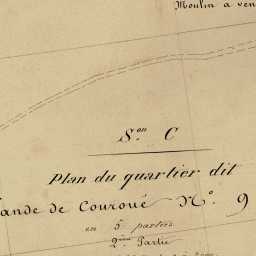 Moulin à ven
S.on C
Plan du quartier dit
ande de Couroué N.o 9
en 5 parties
2ème Partie